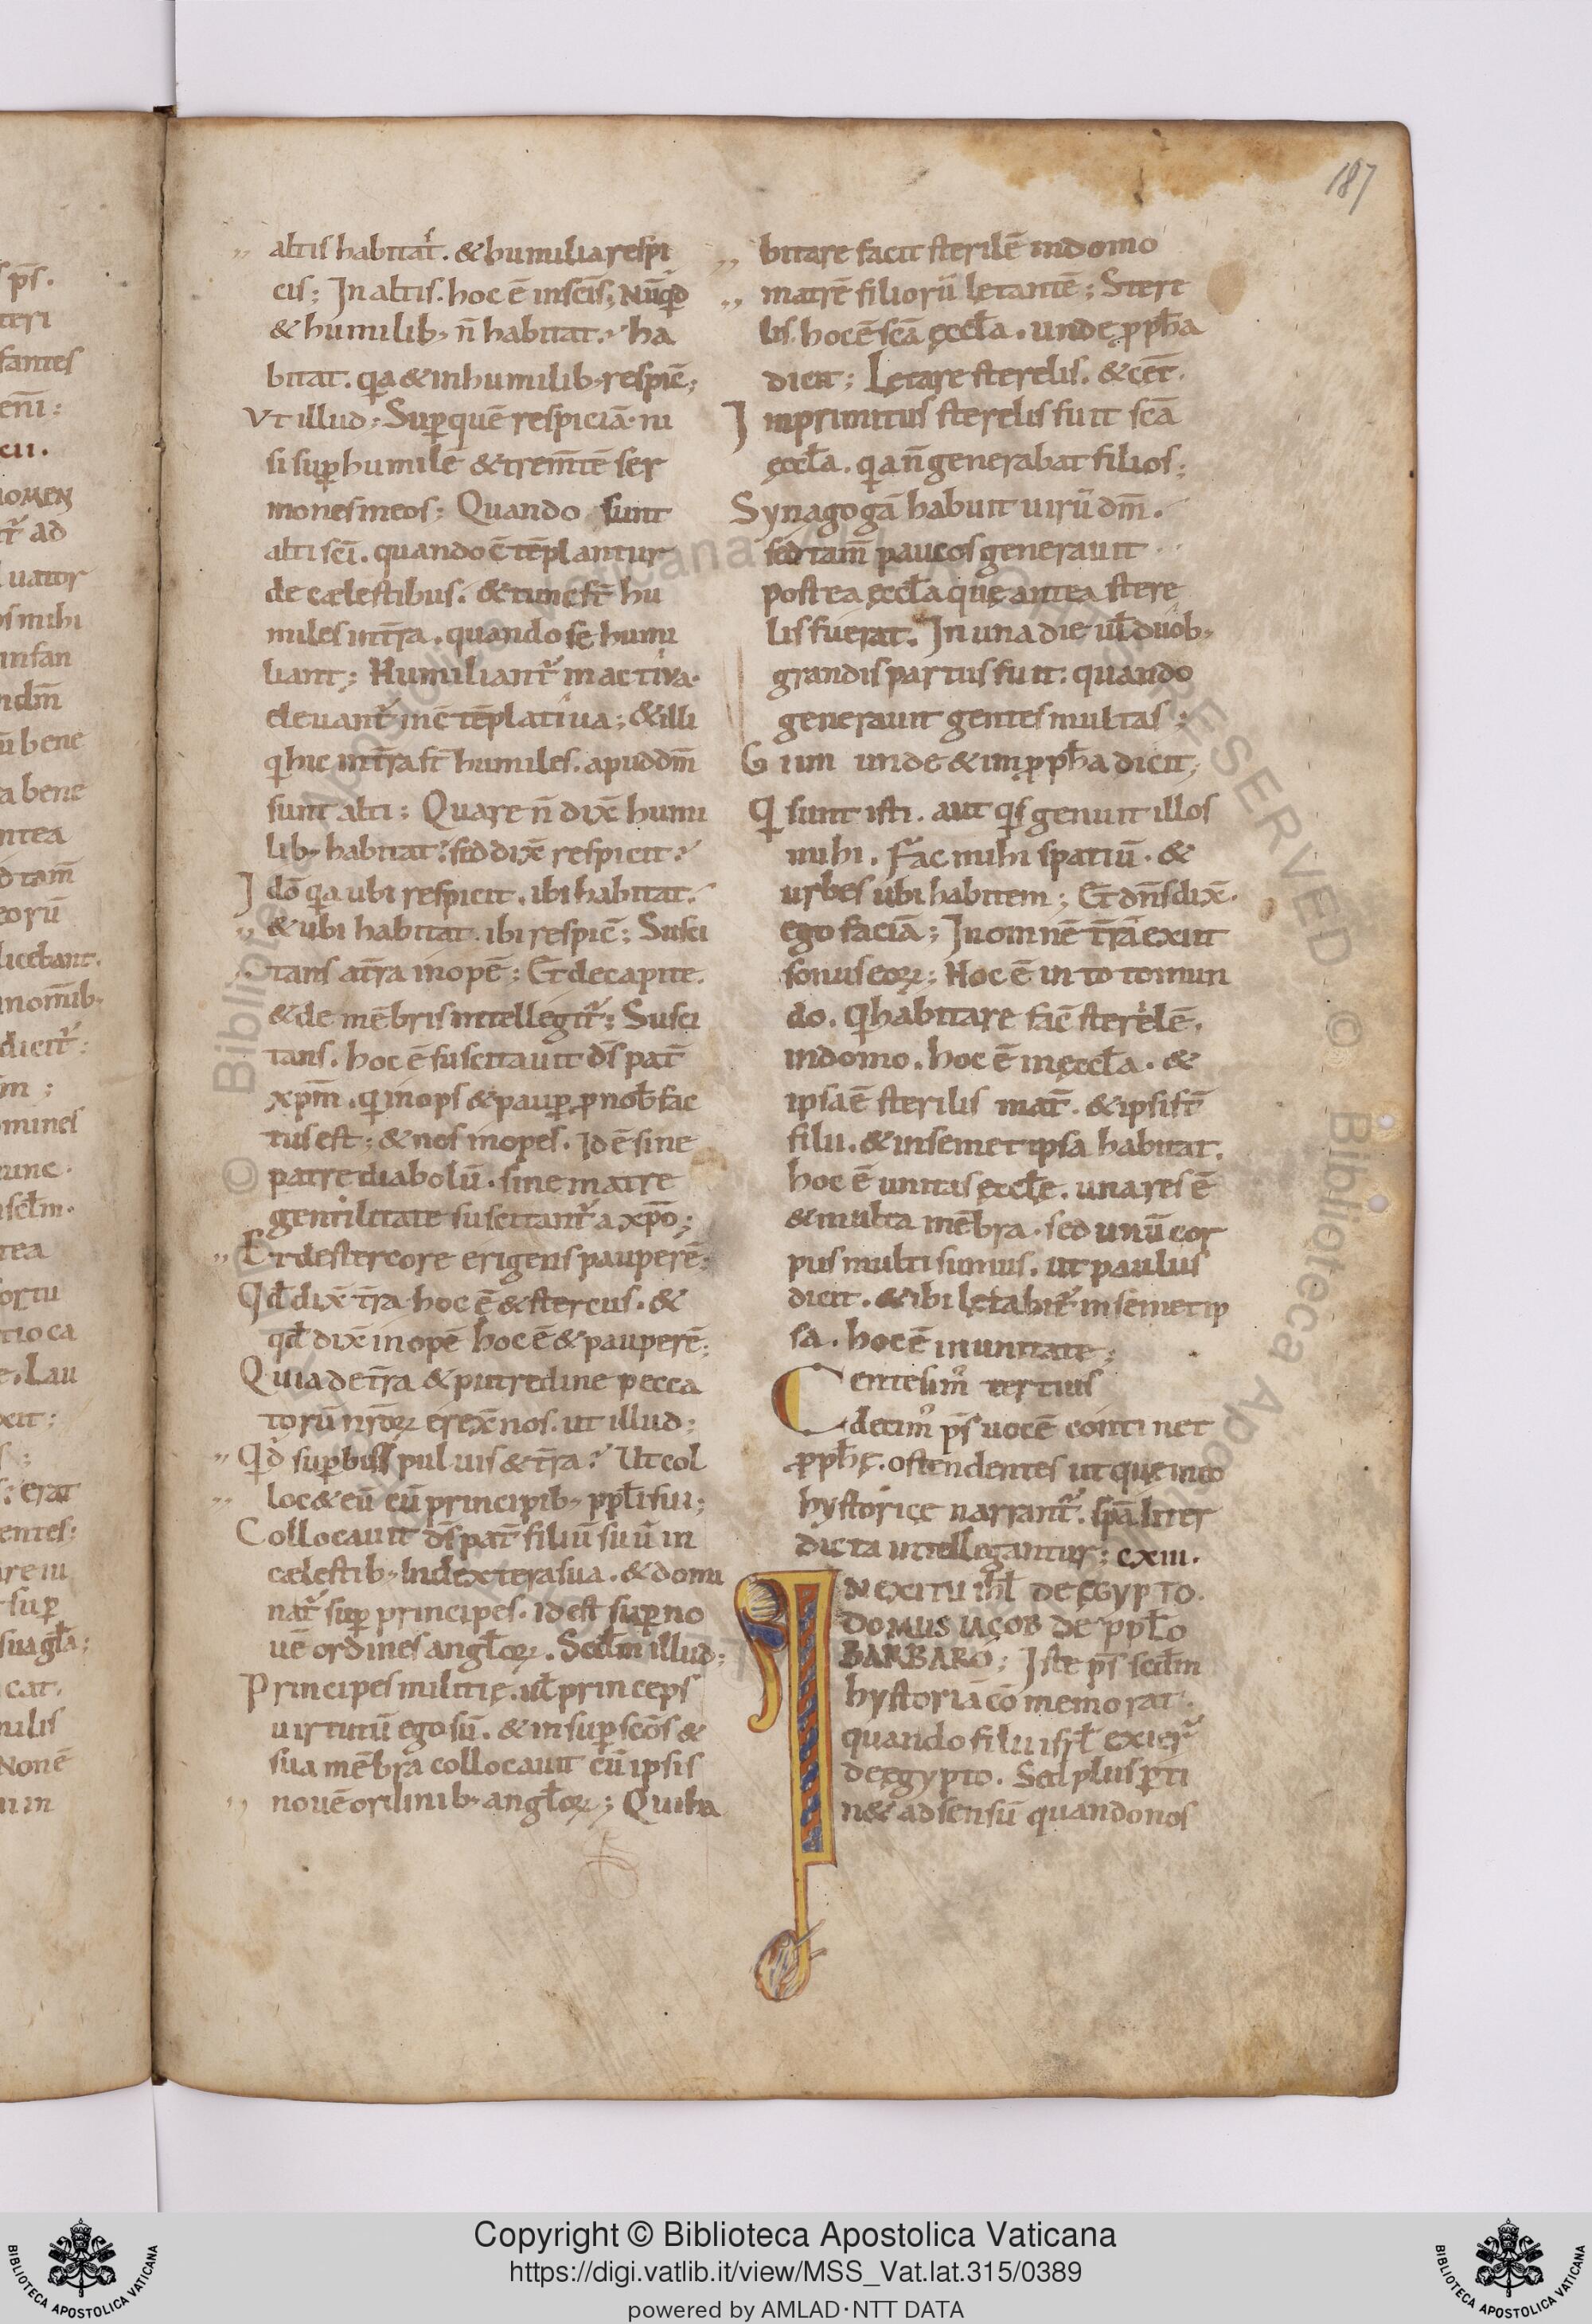 187
altis habitat̄. & humilia respi
cis; In altis. hoc ē insc̄is; Nūqd
& humilib; n̄ habitat. ha
bitat. qa & in humilib; respic̄;
Vt illud; Sup quē respiciā. ni
si sup humilē & trem̄tē ser
mones meos; Quando sunt
alti sc̄i. quando c̄tēplantur
de cęlestibus. & tunc st̄ hu
miles int̄ra. quando se humi
liant; Humiliant̄ in activa.
elevant̄ in c̄tēplatiua; & illi
q hic int̄ra st̄ humiles. apud dm̄
sunt alti; Quare n̄ dix̄ humi
lib; habitat. sed dix̄ respicit.
Idō qa ubi respicit. ibi habitat.
& ubi habitat. ibi respic̄; Susci
tans at̄ra inopē; Et de capite.
& de mēbris intellegit̄; Susci
tans. hoc ē suscitauit ds̄ pat̄
xp̄m. q inops & paup p nob̄ fac
tus est; & nos inopes. Id ē sine
patre diabolū. sine matre
gentilitate suscitant̄ a xp̄o;
Et de stercore erigens pauperē;
Qd̄ dix̄ t̄ra hoc ē & stercus. &
qd̄ dix̄ inopē hoc ē & pauperē;
Quia de t̄ra & putredine pecca
torū nr̄oꝝ erex̄ nos. ut illud;
Qd supbis puluis & t̄ra. Ut col
loc& eū cū principib; ppl̄i sui;
Collocauit ds̄ pat̄ filiū suū in
cęlestib; In dextera sua. & domi
nat̄ sup principes. id est sup no
uē ordines angl̄oꝝ. Scd̄m illud;
Principes militię. ul̄ princeps
uirtutū ego sū. & insup sc̄os &
sua mēbra collocauit cū ipsis
nouē ordinib; angl̄oꝝ; Qui ha
bitare facit sterilē in domo
matrē filiorū lętantē; Steri
lis. hoc ē sc̄a ęccl̄a. unde pph̄a
dicit; Lętare sterelis. & cet̄.
Inprimitus sterelis fuit sc̄a
ęccl̄a. qa n̄ generabat filios;
Synagogā habuit uirū dm̄.
sed tam̄ paucos generauit
postea ęccl̄a quę antea stere
lis fuerat. In una die ul̄ duob;
grandis partus fuit: quando
generauit gentes multas;
unde & in pph̄a dicit;
Q sunt isti. aut qs genuit illos
mihi. Fac mihi spatiū. &
urbes ubi habitem; Et dn̄s dix̄.
ego faciā; In omnē t̄rā exiit
sonus eoꝝ; Hoc ē in toto mun
do. Q habitare fac̄ sterelē.
in domo. hoc ē in ęccl̄a. &
ipsa ē sterilis mat̄. & ipsi st̄
filii. & in semetipsa habitat.
hoc ē unitas ęccl̄e. una res ē
& multa mēbra. sed unū cor
pus multi sumus. ut paulus
dicit. & ibi lętabit̄ in semetip
sa. hoc ē in unitate;
Centesim̄ tertius
decim̄ ps̄ uocē continet
pph̄ę. ostendentes ut quę in eo
hystorice narrant̄. sp̄aliter
dicta intellegantur; cxiii.
IN EXITU ISR̄L DE ĘGYPTO.
DOMUS IACOB DE PPL̄O
BARBARO; Iste ps̄ scd̄m
hystoriā cōmemorat.
quando filii isr̄l exier̄
de ęgypto. Sed plus pti
n& ad sensū quando nos
Copyright © Biblioteca Apostolica Vaticana
https://digi.vatlib.it/view/MSS_Vat.lat.315/0389
powered by AMLAD·NTT DATA
BIBLIOTECA APOSTOLICA VATICANA
BIBLIOTECA APOSTOLICA VATICANA